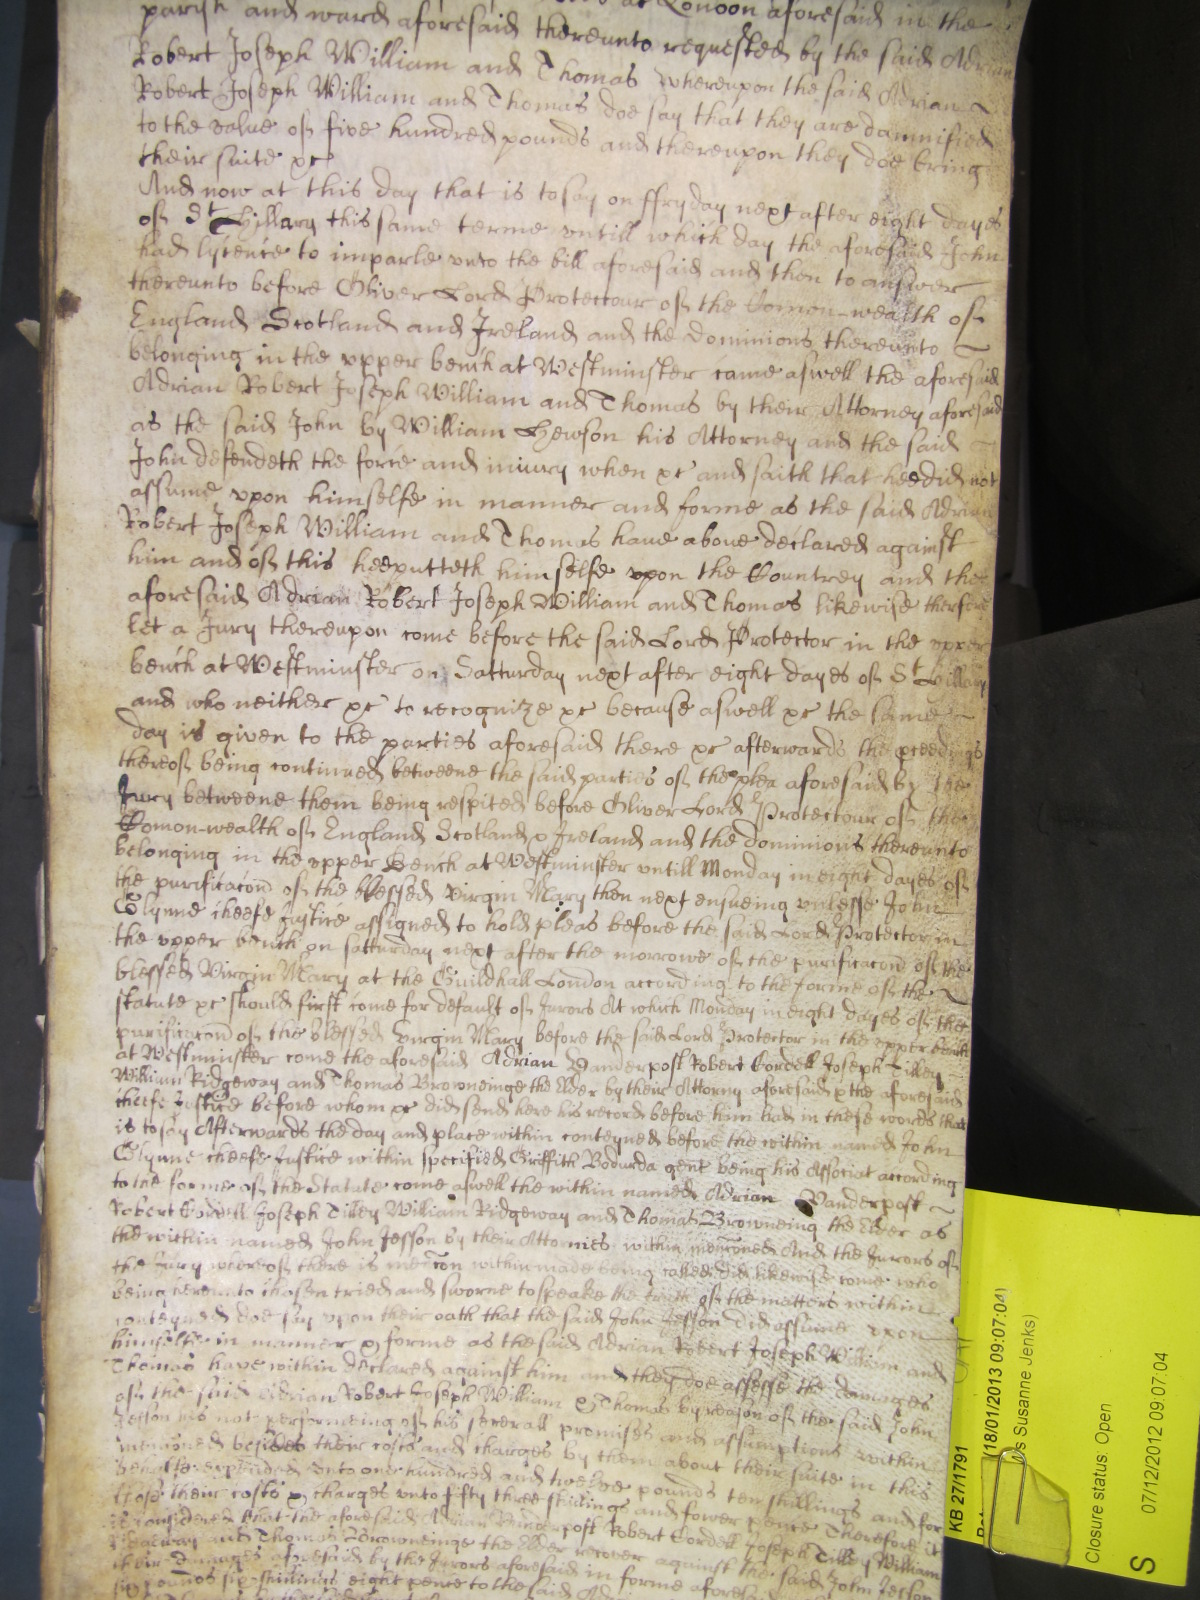 parish and ward aforesaid thereunto requested by the said Adrian
Robert Joseph William and Thomas whereupon the said Adrian
Robert Joseph William and Thomas doe say that they are damnified
to the value of five hundred pounds and thereupon they doe bring
their suite &c
And now at this day that is to say on ffryday next after eight dayes
of St Hillary this same terme untill which day the aforesaid John
had lycence to imparle unto the bill aforesaid and then to answer
thereunto before Oliver Lord Protectour of the Comon-wealth of
England Scotland and Ireland and the dominions thereunto
belonging in the upper bench at Westminster came aswell the aforesaid
Adrian Robert Joseph William and Thomas by their Attorney aforesaid
as the said John by William Hewson his Attorney and the said
John defendeth the force and iniury when &c and saith that hee did not
assume upon himselfe in manner and forme as the said Adrian
Robert Joseph William and Thomas have above declared against
him and of this hee putteth himselfe upon the Countrey and the
aforesaid Adrian Robert Joseph William and Thomas likewise therfore
let a Jury thereupon come before the said Lord Protector in the upper
bench at Westminster on Satturday next after eight dayes of St Hillary
and who neither &c to recognize &c because aswell &c the same
day is given to the parties aforesaid there &c afterwards the pceedings
thereof being continued betweene the said parties of the plea aforesaid by the
Jury betweene them being respited before Oliver Lord Protectour of the
Comon-wealth of England Scotland & Ireland and the dominions thereunto
belonging in the upper Bench at Westminster untill Monday in eight dayes of
the purificacon of the blessed virgin Mary then next ensueing unlesse John
Glynne cheefe Justice assigned to hold pleas before the said Lord Protector in
the upper bench on satturday next after the morrowe of the purificacon of the
blessed Virgin Mary at the Guildhall London according to the forme of the
statute &c should first come for default of Jurors At which Monday in eight dayes of the
purificacon of the blessed Virgin Mary before the said Lord Protector in the upper bench
at Westminster come the aforesaid Adrian Vanderpost Robert Cordell Joseph Tilley
William Ridgeway and Thomas Browneinge the Elder by their Attorny aforesaid & the aforesaid
cheefe Justice before whom &c did send here his record before him had in these words that
is to say Afterwards the day and place within conteyned before the within named John
Glynne cheefe Justice within specified Griffith Bodurda gent being his Associat according
to the forme of the Statute come aswell the within named Adrian Vanderpost
Robert Cordell Joseph Tilley William Ridgeway and Thomas Browneing the Elder as
the within named John Jesson by their Attornies within menconed And the Jurors of
the Jury whereof there is mencon within made being called did likewise come who
being hereunto chosen tried and sworne to speake the truth of the matters within
conteyned doe say upon their oath that the said John Jesson did assume upon
himselfe in manner & forme as the said Adrian Robert Joseph William and
Thomas have within declared against him and they doe assesse the damages
of the said Adrian Robert Joseph William & Thomas by reason of the said John
Jesson his not performeing of his severall promises and assumptions within
menconed besides their costs and charges by them about their suite in this
behalfe expended unto one hundred and twelve pounds ten shillings and for
those their costs & charges unto fifty three shillings and fower pence Therefore it
is considered that the aforesaid Adrian Vanderpost Robert Cordell Joseph Tilley William
Ridgeway and Thomas Browneinge the Elder recover against the said John Jesson
their damages aforesaid by the Jurors aforesaid in forme
pounds shillings eight pence to the said
KB 27/1791
(18/01/2013 09:07:04)
Susanne Jenks)
Closure status: Open
S
07/12/2012 09:07:04